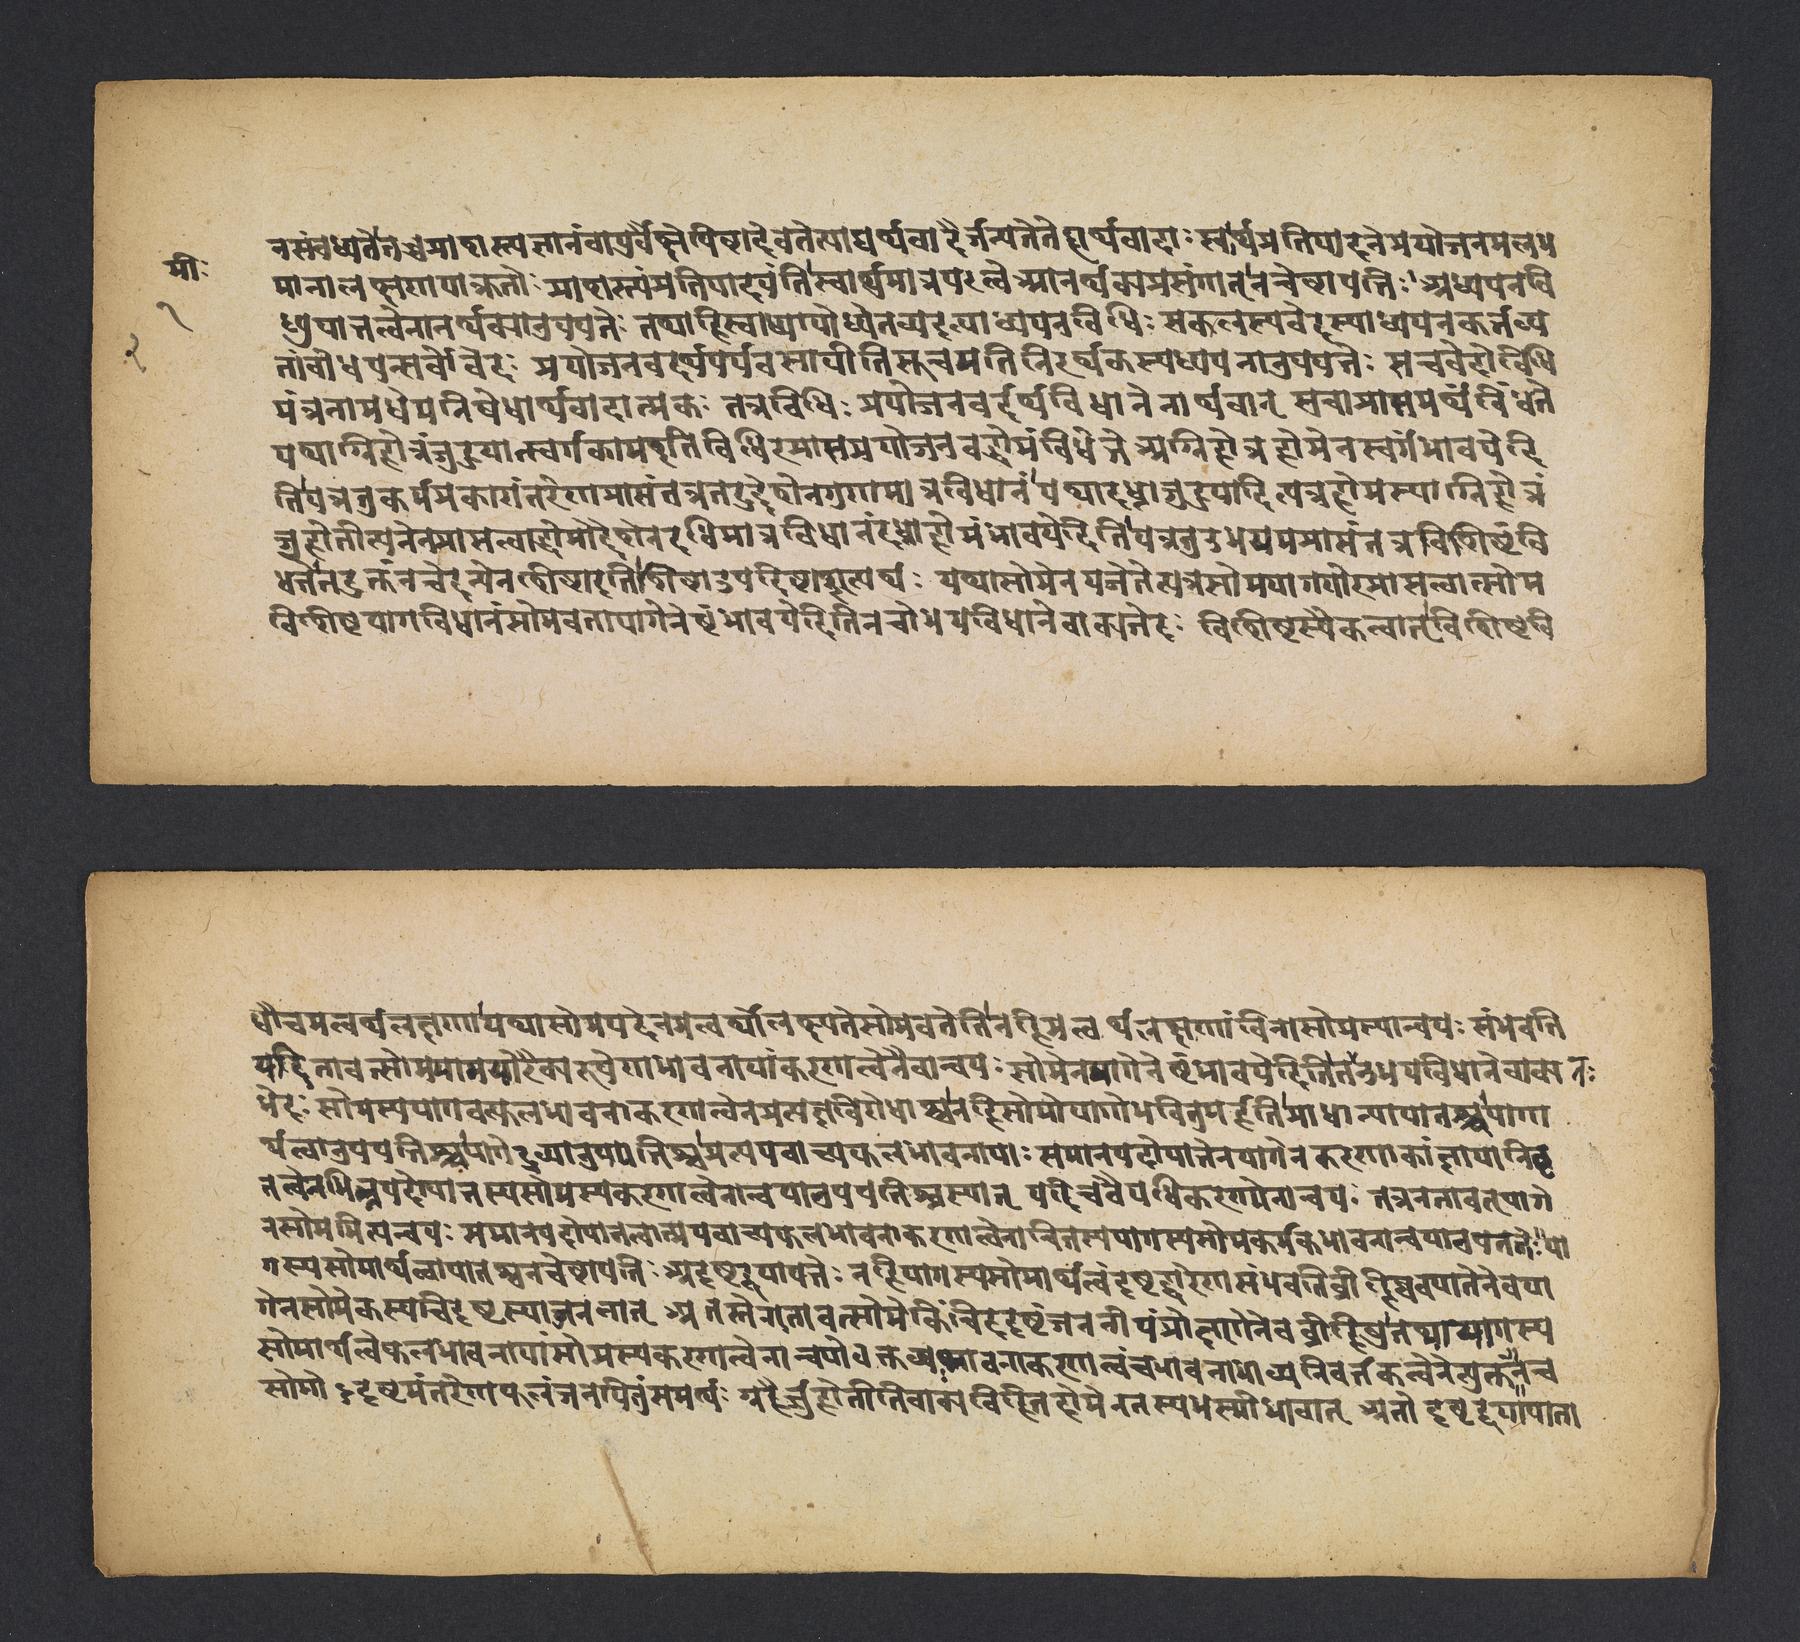 नसंबध्यतेतच्चप्राशस्त्यज्ञानंवायुर्वैक्षेपिष्ठादेवतेत्याद्यर्थवादैर्जन्यतेतेह्यर्थवादाः स्वार्थप्रतिपादनेप्रयोजनमलभ
मी:
मानालक्षणयाक्रतोः प्राशस्त्यंप्रतिपादयंति स्वार्थमात्रपरत्वेआनर्थक्यप्रसंगात् नचेष्टापत्तिः अध्ययनवि
१
ध्युपात्तत्वेनानर्थक्यानुपपत्तेः तथाहिस्वाध्यायोध्येतव्यइत्याध्ययनविधिः सकलस्यवेदस्याध्ययनकर्तव्य
२
तांबोधयन्सर्वोवेदः प्रयोजनवदर्थपर्यवसायीतिसूचयति निरर्थकस्यध्ययनानुपपत्तेः सचवेदोविधि
मंत्रनामधेयनिषेधार्थवादात्मकः तत्रविधिः प्रयोजनवदर्थविधानेनार्थवान् सचाप्राप्तमर्थंविधत्ते
यथाग्निहोत्रंजुहुयात्स्वर्गकामइतिविधिरप्राप्तप्रयोजनवद्धोमंविधत्ते अग्निहोत्रहोमेनस्वर्गंभावयेदि
ति यत्रतुकर्मप्रकारांतरेणप्राप्तंतत्रतदुद्देशेनगुणमात्रविधानं यथादध्नाजुहुयादित्यत्रहोमस्याग्निहोत्रं
जुहोतीत्यनेनप्राप्तत्वाद्धोमोद्देशेनदधिमात्रविधानंदध्नाहोमंभावयेदिति यत्रतुउभयमप्राप्तंतत्रविशिष्टंवि
धत्ते तदुक्तंनचेदन्येनशिष्टाइति शिष्टाउपदिष्टाइत्यर्थः यथासोमेनयजेतेत्यत्रसोमयागयोरप्राप्तत्वात्सोम
विशिष्टयागविधानंसोमवतायागेनेष्टंभावयेदिति नचोभयविधानेवाक्यभेदः विशिष्टस्यैकत्वात् विशिष्टवि
धौचमत्वर्थलक्षणा यथासोमपदेनमत्वर्थोलक्ष्यतेसोमवतेति नहिमत्वर्थलक्षणांविनासोमस्यान्वयः संभवति
यदितावत्सोमयागयोरैक्यरूप्येणभावनायांकरणत्वेनैवान्वयः सोमेनयागेनेष्टंभावयेदिति तन्नउभयविधानेवाक्य
भेदः सोमस्ययागवत्फलभावनाकरणत्वेनप्राधान्यापातश्च
र्थत्वानुपपत्तिश्च यागेद्रव्यानुपपत्तिश्च प्रत्ययवाच्यफलभावनायाः समानपदोपात्तेनयागेनकरणाकांक्षायानिवृ
त्तत्वेनभिन्नपदोपात्तस्यसोमस्यकरणत्वेनान्वयानुपपत्तिश्चस्यात् यदिचवैयधिकरण्येनान्वयः तत्रनतावत्यागे
नसोममित्यन्वयः समानपदोपात्तत्वात्प्रत्ययवाच्यफलभावनाकरणत्वेनान्वितस्ययागस्यसोमकर्मकभावनान्वयानुपपत्तेः या
गस्यसोमार्थत्वापातश्चनचेष्टापत्तिः अदृष्टद्वयापत्तेः नहियागस्यसोमार्थत्वंदृष्टद्वारेणसंभवतिव्रीहिष्ववघातेनेवया
गेनसोमेकस्यचिदृष्टस्याजननात् अतस्तेनतावत्सोमेकिंचिददृष्टंजननीयंप्रोक्षणेनेवव्रीहिषु तथायागस्य
सोमार्थत्वेफलभावनायांसोमस्यकरणत्वेनान्वयोवक्तव्यः भावनाकरणत्वंचभावनाभाव्यनिवर्तकत्वेनेत्युक्तं नच
सोमोऽदृष्टमंतरेणफलंजनयितुंसमर्थः ग्रहैर्जुहोतीतिवाक्यविहितहोमेनतस्यभस्मीभावात् अतोदृष्टद्वयापाता